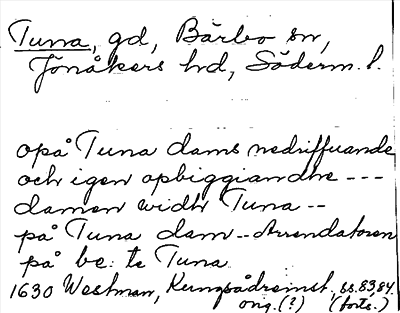 Tuna, gd, Bärbo sn,
Jönåkers hd, Söderm. l.
opå Tuna dams nedriffuande
och igen opbiggiandhe ---
damen widh Tuna --
på Tuna dam -- Arrendatoren
på be: te Tuna
1630 Westman, Kungsådremst. ss. 83, 84.
ong. (?) (forts.)